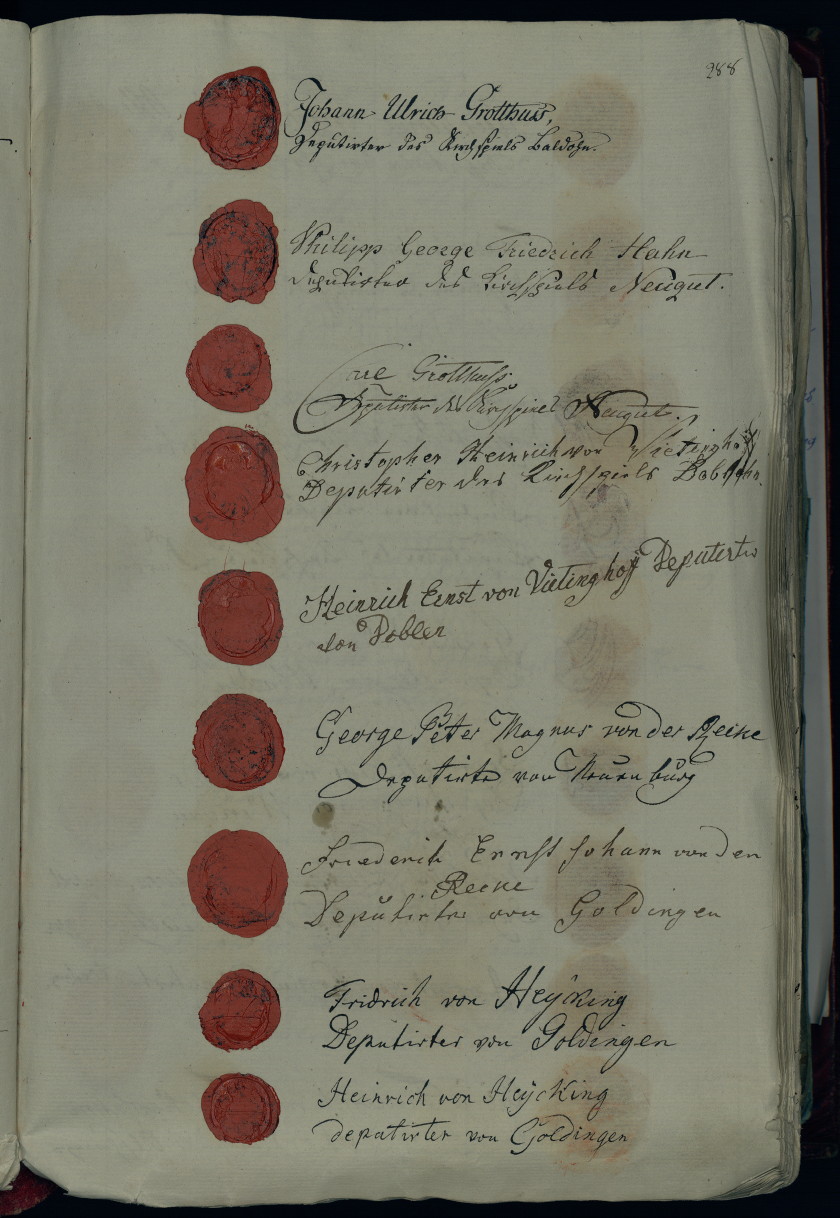 288
Johann Ulrich Grotthuss,
Deputirter des Kirchspiels Baldohn.
Philipp George Friedrich Hahn
Deputirter des Kirchspiels Neugut.
Carl Grotthuss
Deputirter des Kirchspiels Neugut.
Christopher Heinrich von Vietinghoff
Deputirter des Kirchspiels
Heinrich Ernst von Vietinghoff Deputirter
von Doblen
George Peter Magnus von der Recke
Deputirte von Neuenburg
Friederich Ernst Johann von den
Recke
Deputirter von Goldingen
Fridrich von Heyking
Deputirter von Goldingen
Heinrich von Heycking
deputirter von Goldingen